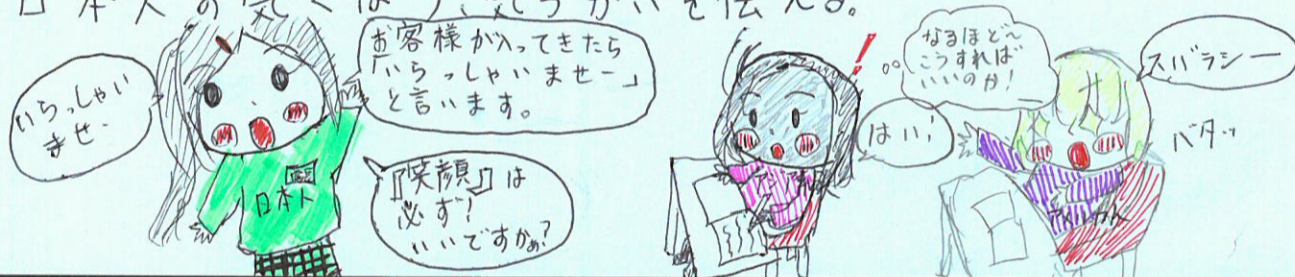 日本人の気くばり、気づかいを伝える。
いらっしゃい
ませ、
お客様が入ってきたら
「いらっしゃいませー」
と言います。
『笑顔』は
必ず!
いいですかぁ?
日本人
!
はい!
なるほど〜
こうすれば
いいのか!
スバラシー
バタッ
アメリカ人